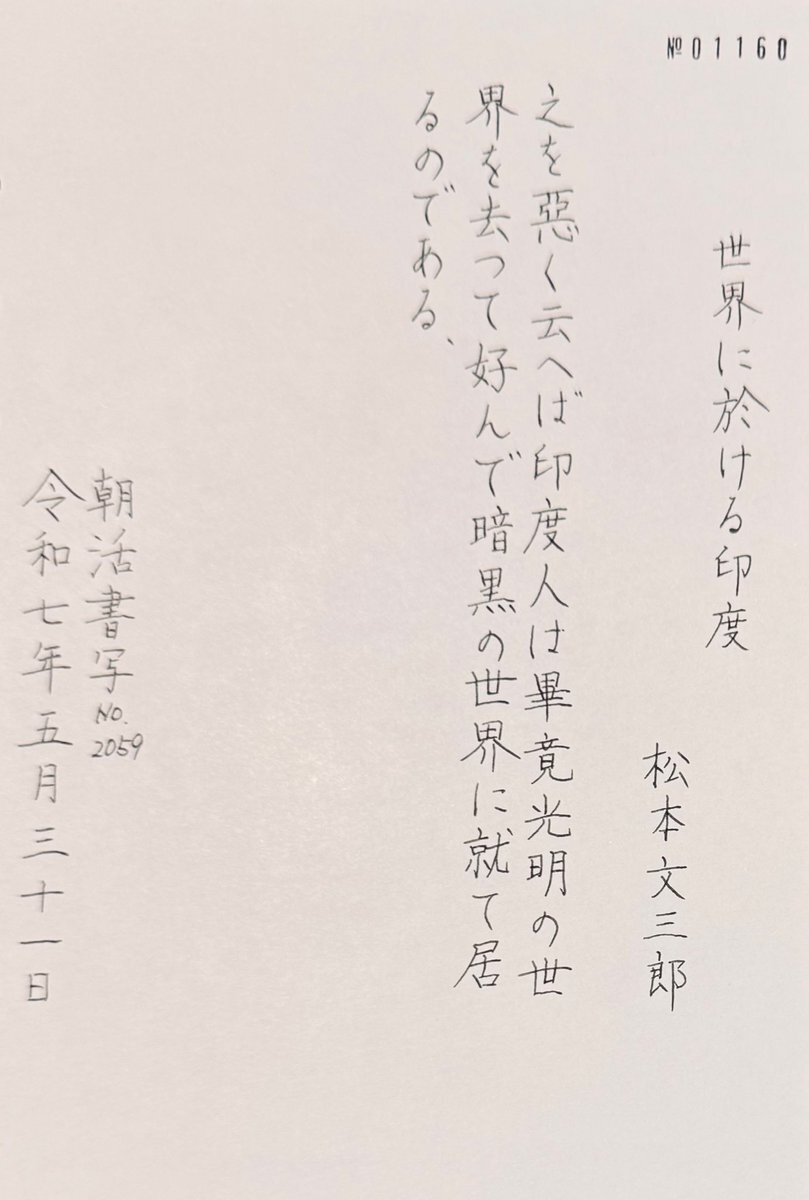 №01160
世界に於ける印度
松本文三郎
之を惡く云へば印度人は畢竟光明の世
界を去つて好んで暗黒の世界に就て居
るのである、
朝活書写No.2059
令和七年五月三十一日